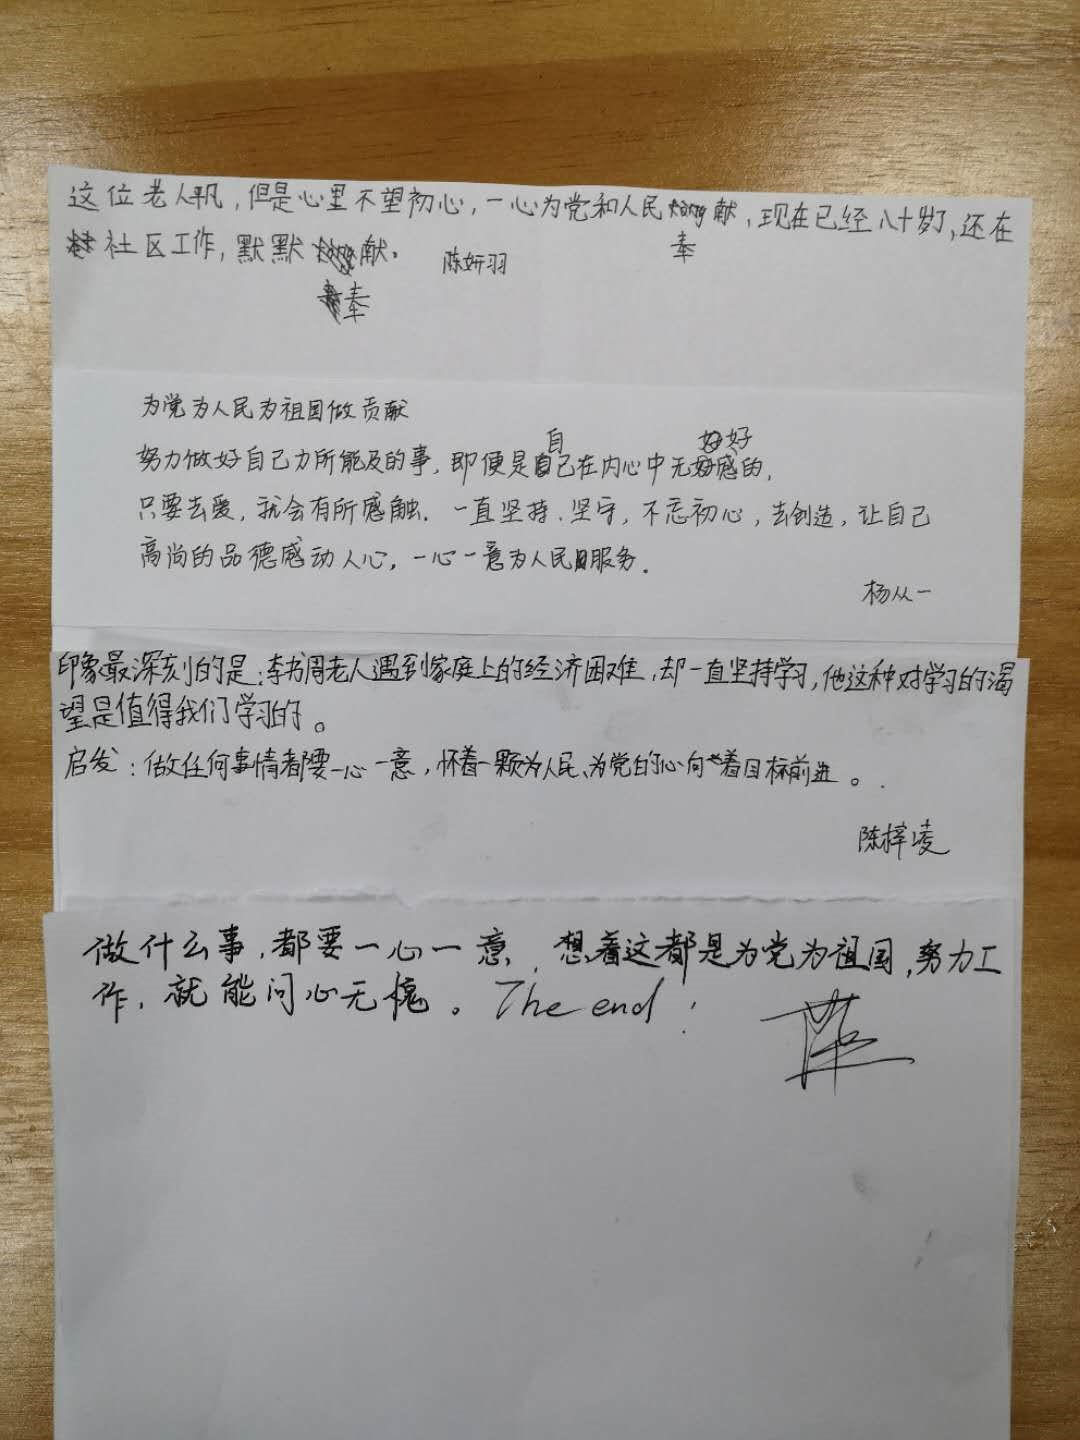 这位老人平凡，但是心里不望初心，一心为党和人民奉献，现在已经八十岁了，还在
社区工作，默默奉献。 陈妍羽
为党为人民为祖国做贡献
努力做好自己力所能及的事，即便是自己在内心中无好感的，
只要去爱，就会有所感触．一直坚持、坚守，不忘初心，去创造，让自己
高尚的品德感动人心，一心一意为人民服务．
杨从一
印象最深刻的是：李书周老人遇到家庭上的经济困难，却一直坚持学习，他这种对学习的渴
望是值得我们学习的。
启发：做任何事情都要一心一意，怀着一颗为人民、为党的心向着目标前进。
陈梓凌
做什么事，都要一心一意，想着这都是为党为祖国，努力工
作，就能问心无愧。The end！